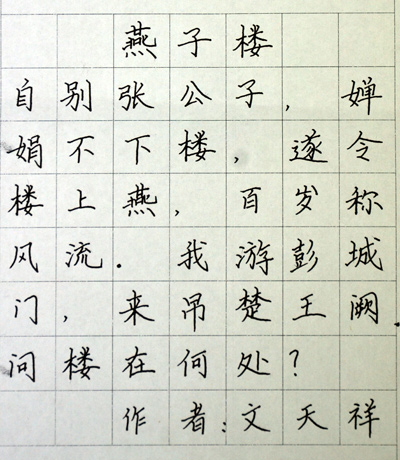 燕子楼
自别张公子，婵
娟不下楼，遂令
楼上燕，百岁称
风流．我游彭城
门，来吊楚王阙
问楼在何处？
作者：文天祥